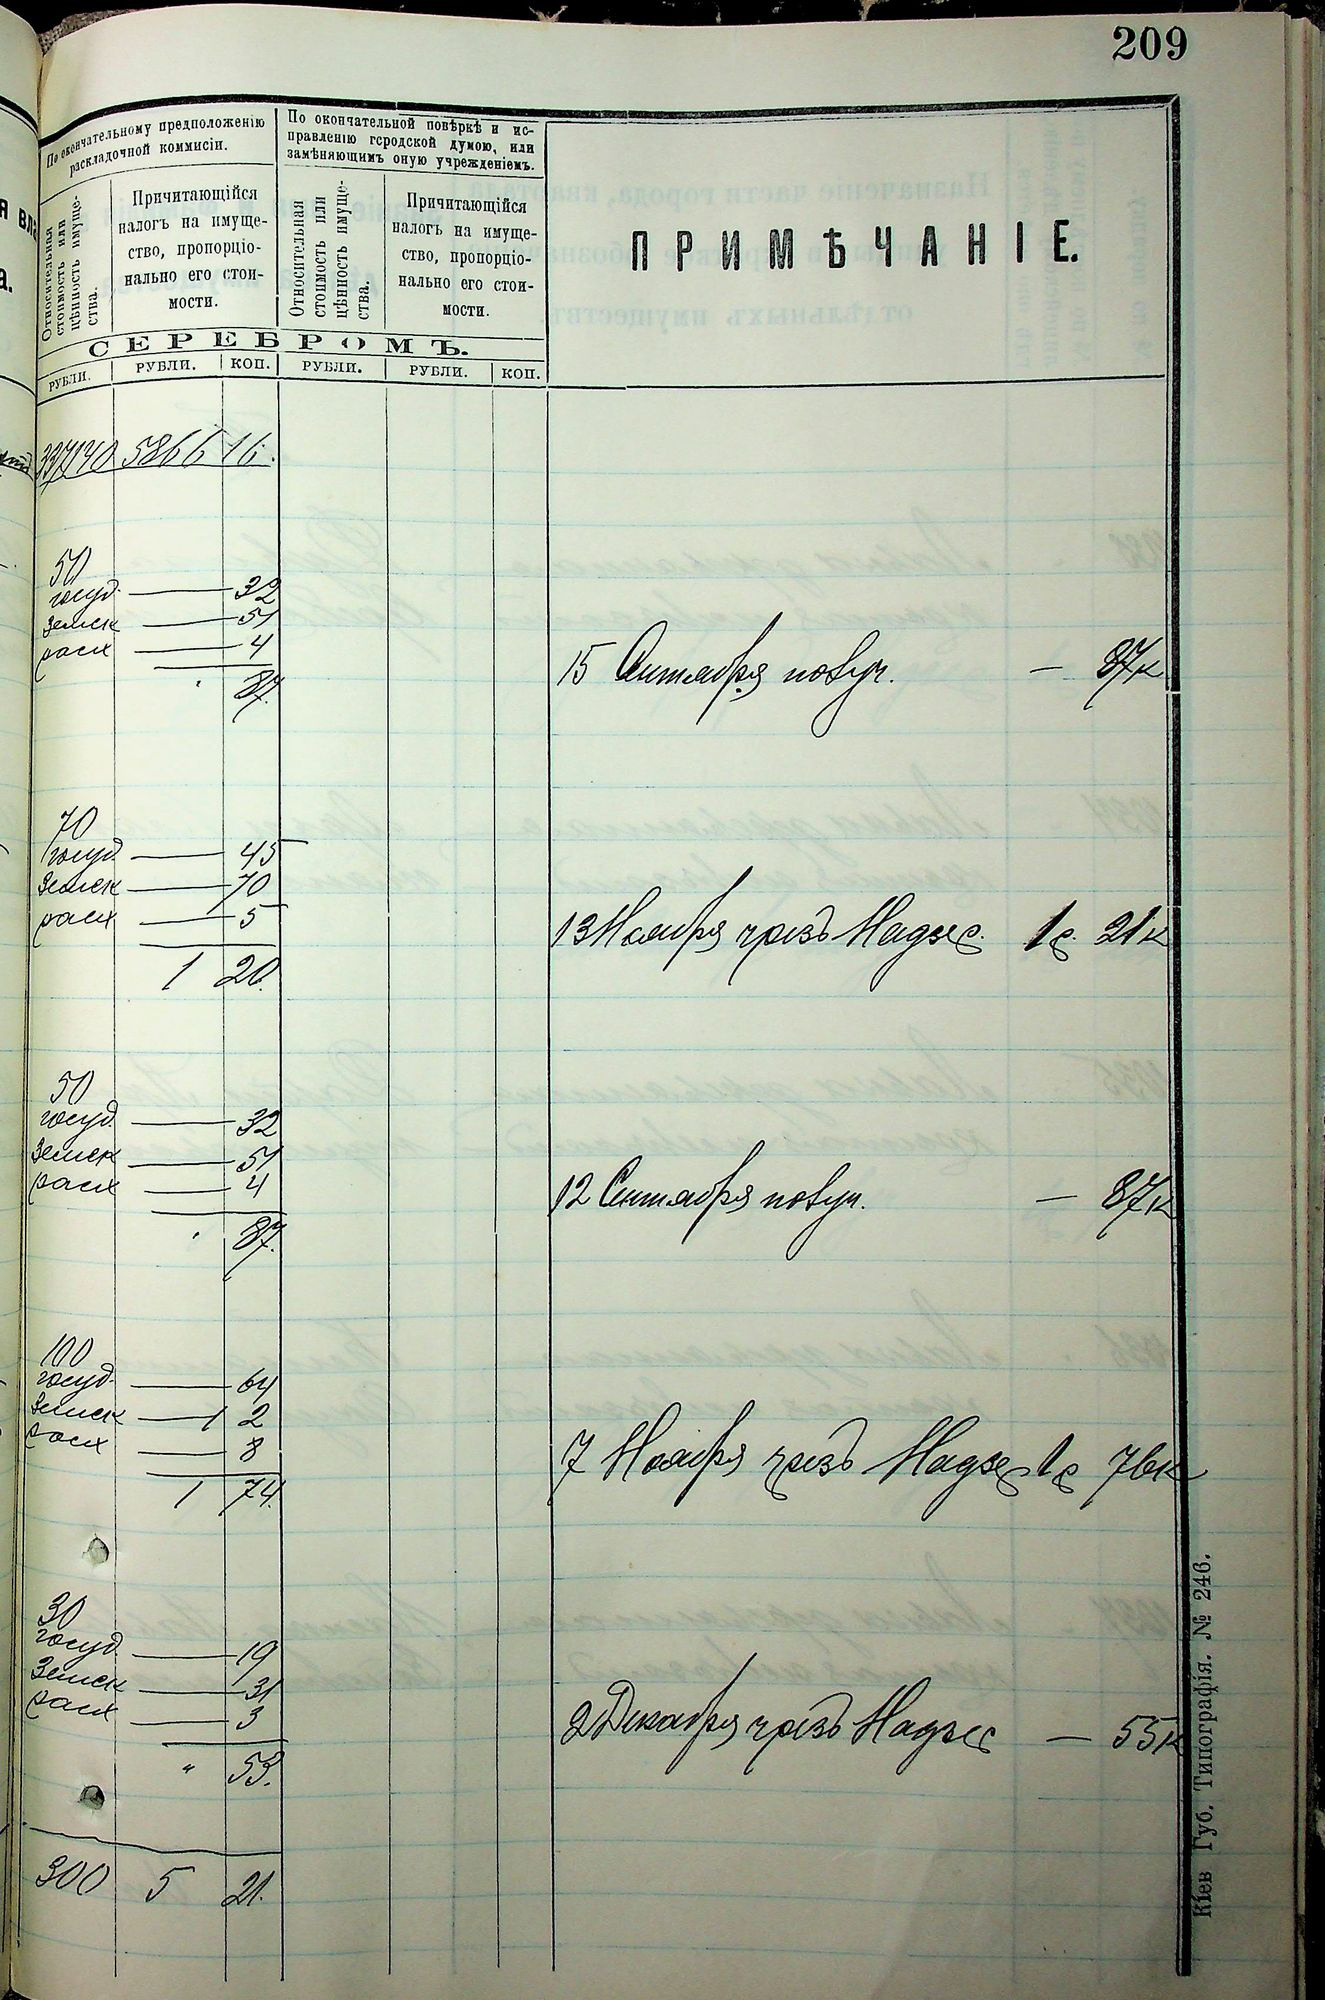 209
По окончательному предположенію
раскладочной коммисіи.
По окончательной повѣркѣ и ис-
правленію городской думою, или
замѣняющимъ оную учрежденіемъ.
Относительная
стоимость или
цѣнность имуще-
ства.
Причитающійся
налогъ на имуще-
ство, пропорціо-
нально его стои-
мости.
Относительная
стоимость или
цѣнность имуще-
ства.
Причитающійся
налогъ на имуще-
ство, пропорціо-
нально его стои-
мости.
ПРИМѢЧАНІЕ.
СЕРЕБРОМЪ.
РУБЛИ. РУБЛИ. КОП. РУБЛИ. РУБЛИ. КОП.
337140 5866 16.
50
госуд. — 32
земск — 51
расх — 4
" 87.
15 Сентября — 87к
70
госуд — 45
земск — 70
расх — 5
1 20.
13 Ноября чрезъ Надзс. 1р. 21к
50
госуд — 32
земск — 51
расх — 4
" 87.
12 Сентября — 87к
100
госуд. — 64
земск — 1 2
расх — 8
1 74.
7 Ноября чрезъ Надзс 1р 76к
30
госуд — 19
земск — 31
расх — 3
" 53.
2 Декабря чрезъ Надзс — 55к
300 5 21.
Кіев Губ. Типографія. № 246.